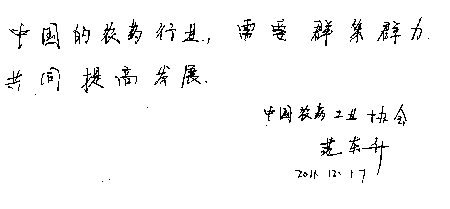 中国的农药行业,需要群策群力
共同提高发展.
中国农药工业协会
2011.12.17